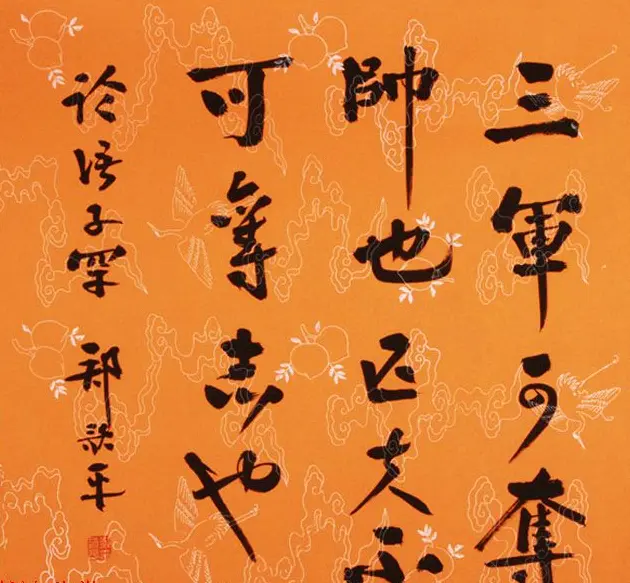 三軍可奪
帥也匹夫不
可奪志也
论语子罕 郑平